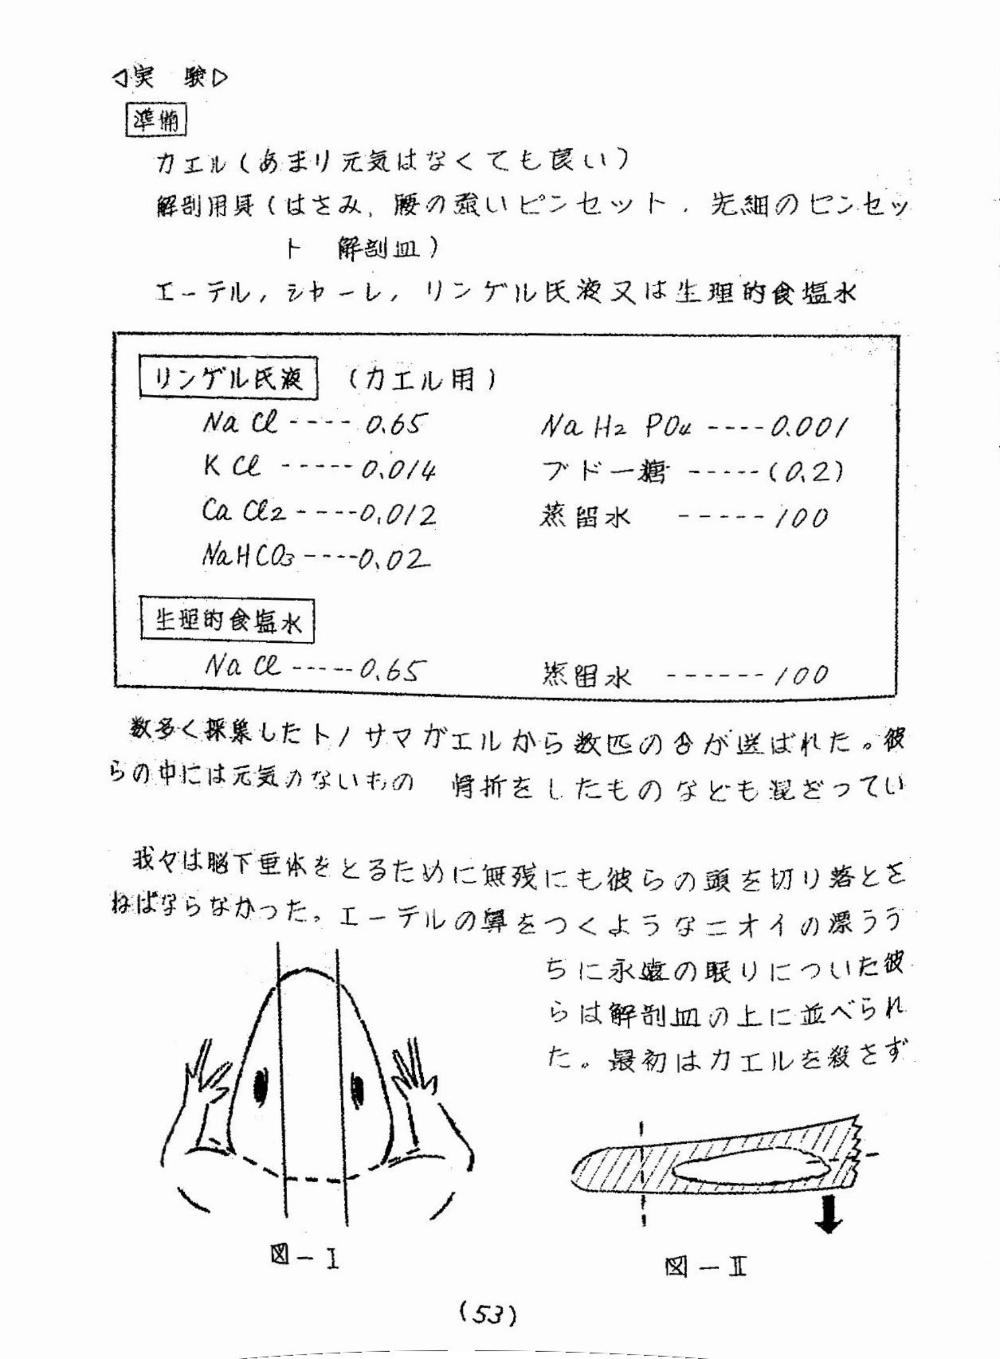 ◁実 験▷
準備
カエル(あまり元気はなくても良い)
解剖用具(はさみ、腰の強いピンセット、先細のピンセッ
ト 解剖皿)
エーテル,シャーレ,リンゲル氏液又は生理的食塩水
リンゲル氏液 (カエル用)
NaCl ---- 0.65
NaH2PO4 ---- 0.001
KCl ----- 0.014
ブドー糖 ----- (0.2)
CaCl2 ---- 0.012
蒸留水 ----- 100
NaHCO3 ---- 0.02
生理的食塩水
NaCl ----- 0.65
蒸留水 ------ 100
数多く採集したトノサマガエルから数匹の
が選ばれた。彼
らの中には元気のないもの 骨折をしたものなども混ざってい
我々は脳下垂体をとるために無残にも彼らの頭を切り落とさ
ねばならなかった。エーテルの鼻をつくようなニオイの漂うう
ちに永遠の眠りについた彼
らは解剖皿の上に並べられ
た。最初はカエルを殺さず
図-I
図-II
(53)